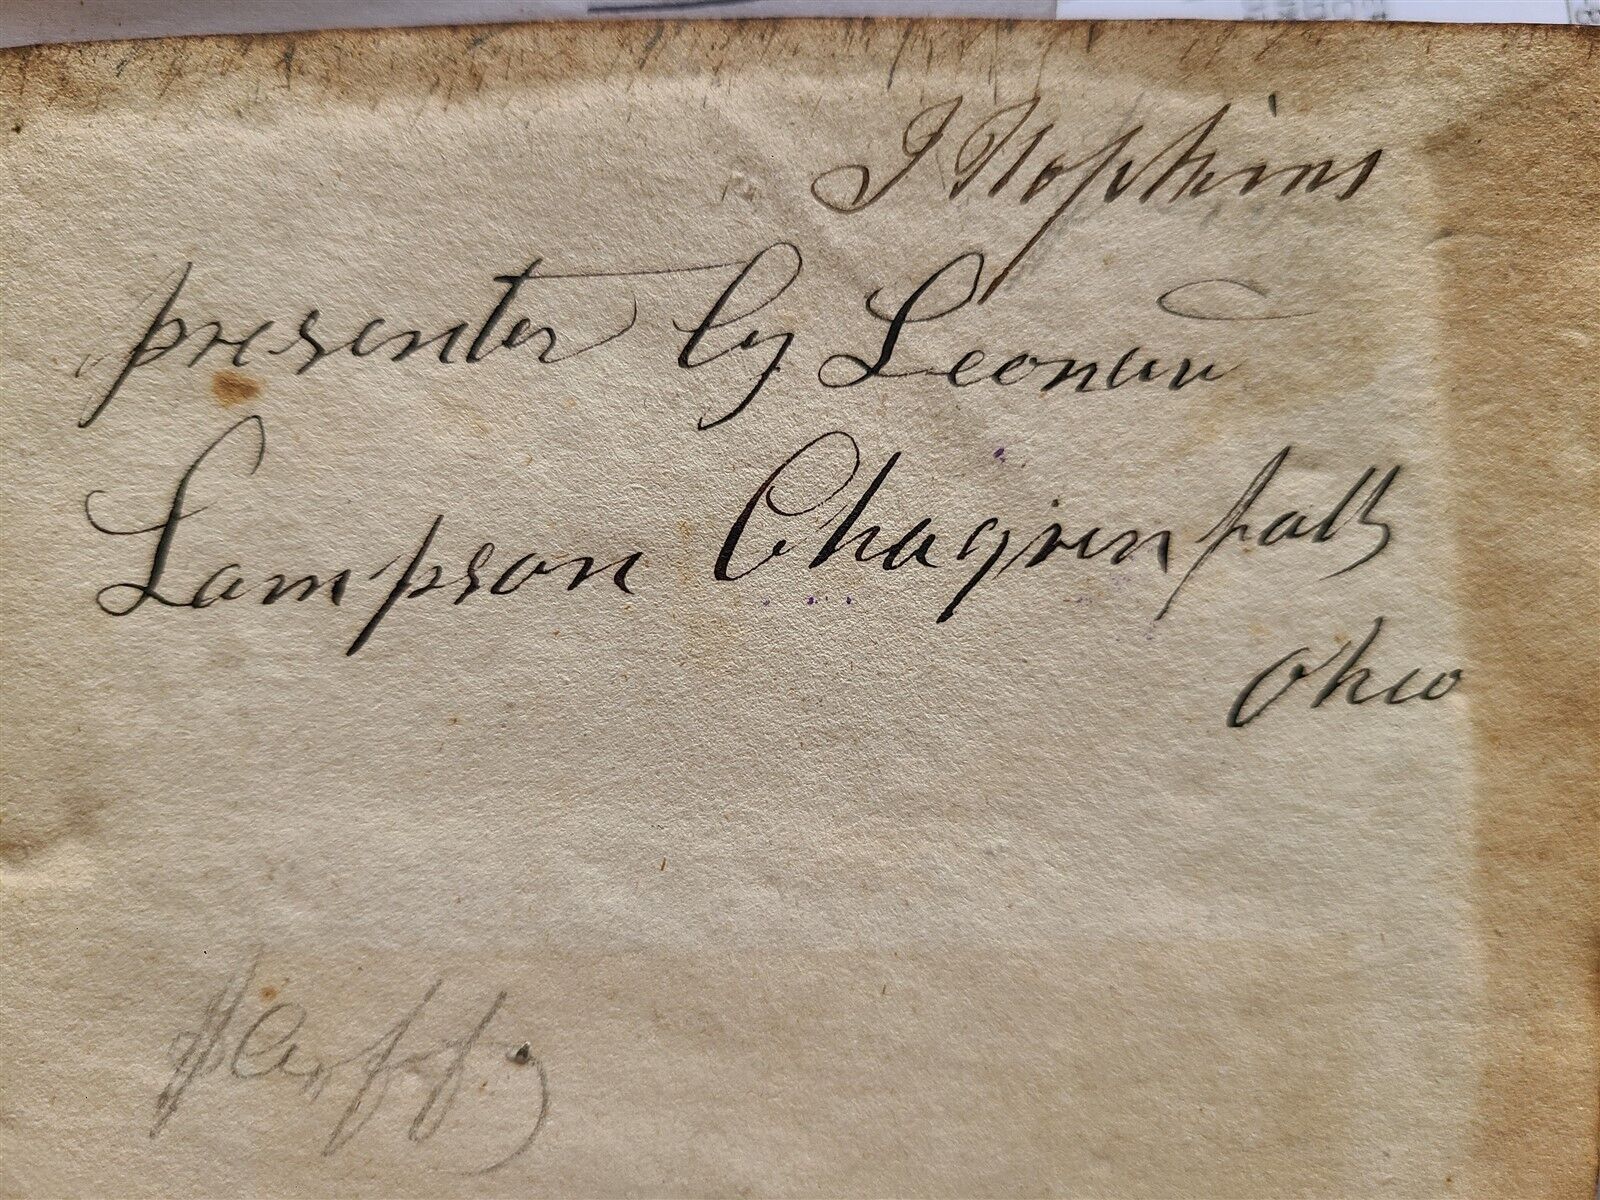 J Hopkins
presented by Leonard
Lampson Chagrin falls
Ohio